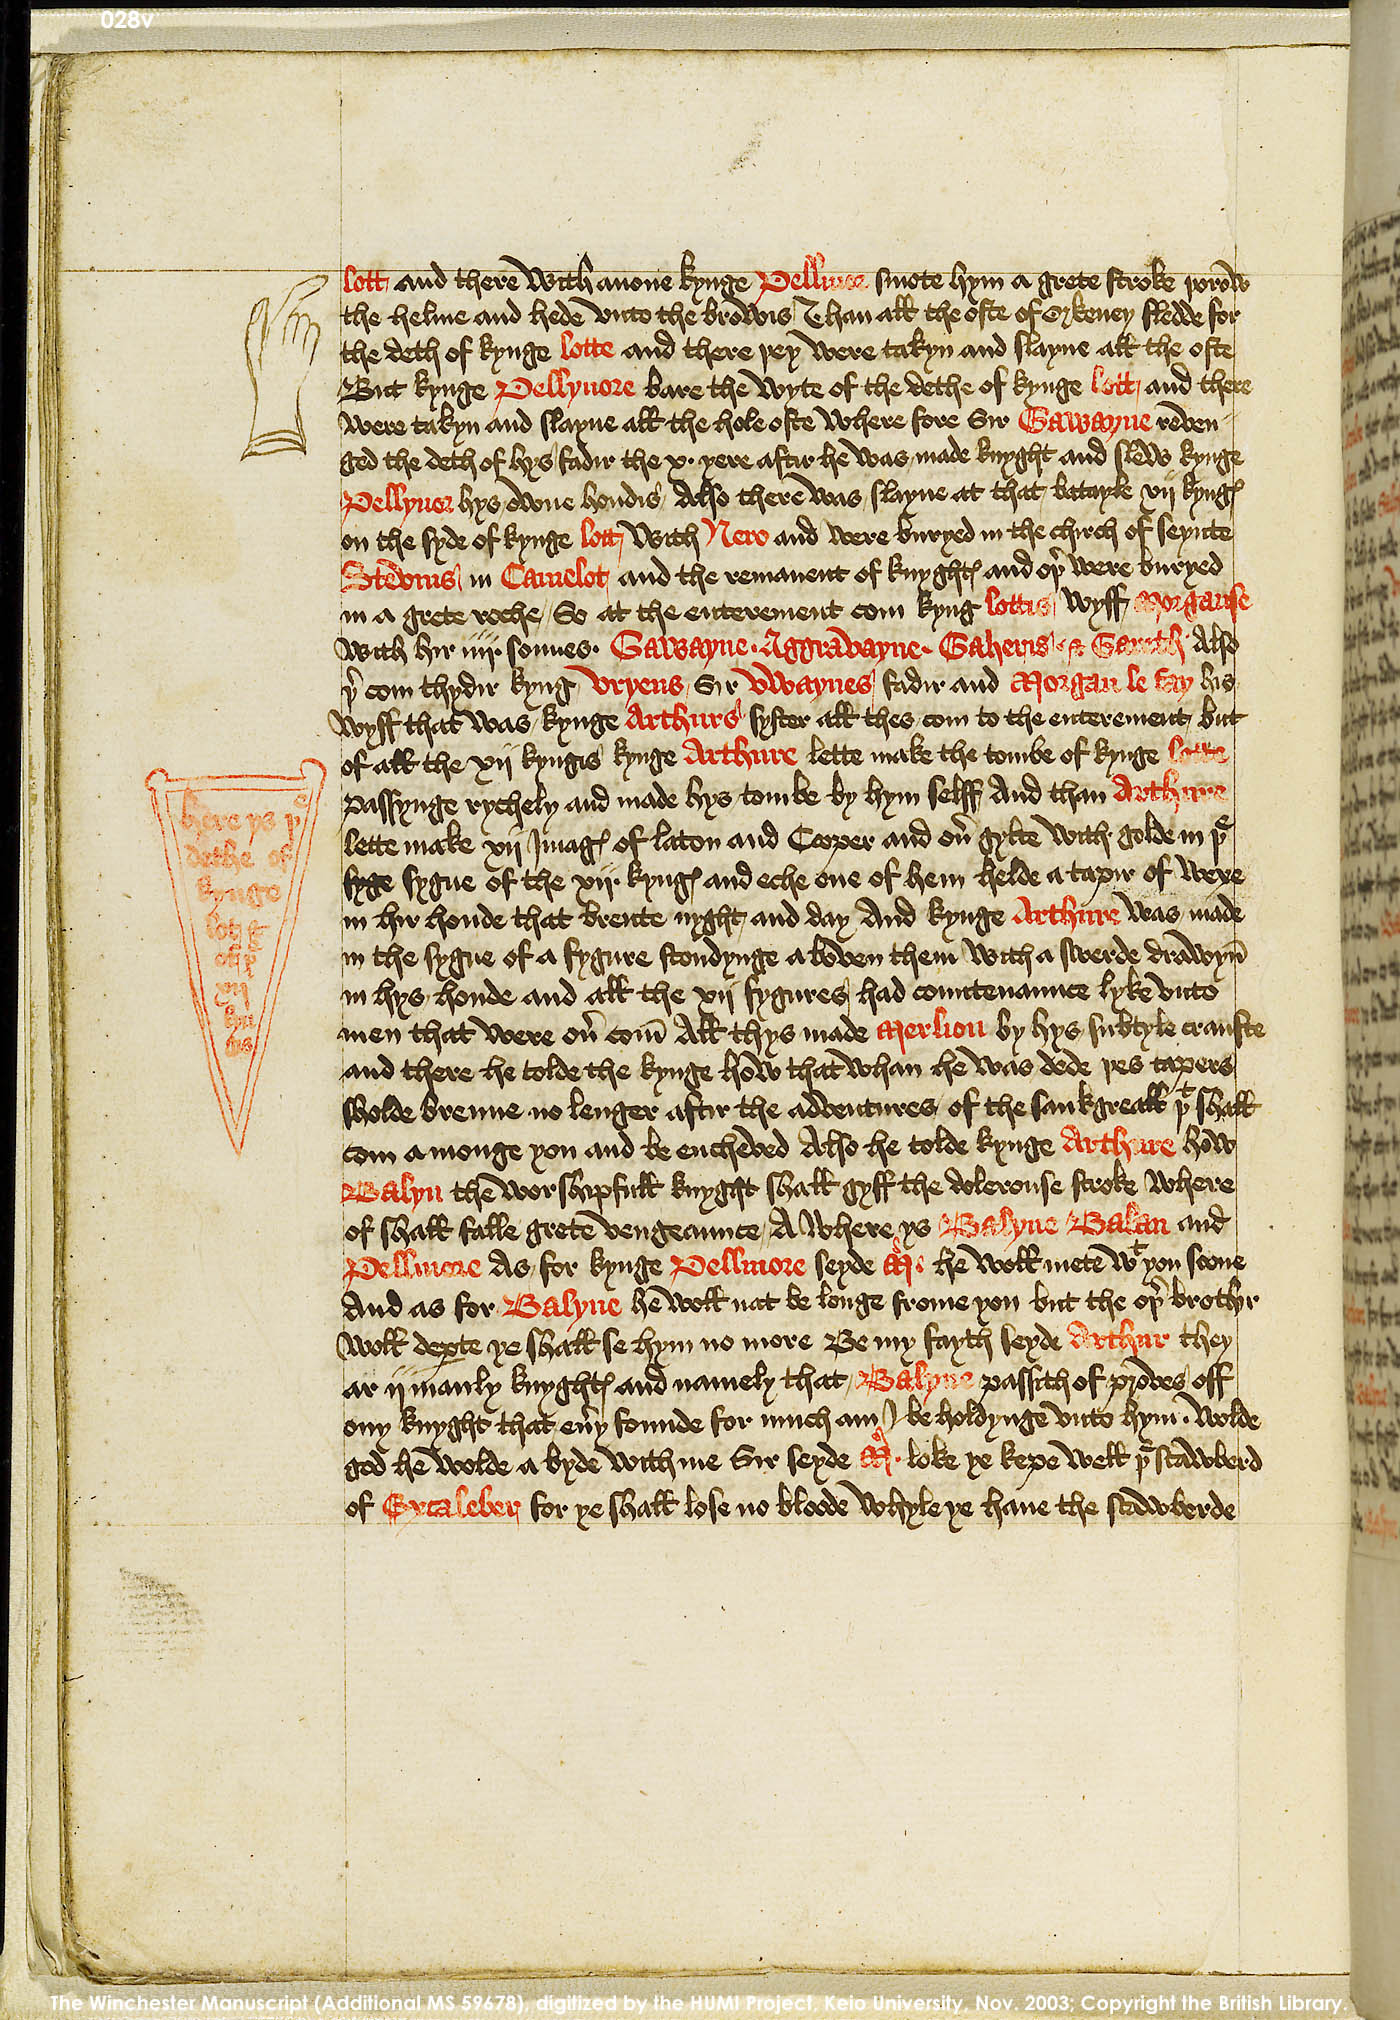 028v
lott and there with anone kynge Pellinore smote hym a grete stroke þorow
the helme and hede vnto the browis Than all the oste of Orkeney fledde for
the deth of kynge lotte and there þey were takyn and slayne all the oste
But kynge Pellynore bare the wyte of the dethe of kynge lott and there
were takyn and slayne all the hole oste where fore Sir Gawayne reven
ged the deth of hys fadir the x. yere aftir he was made knyght and slew kynge
Pellynor hys owne hondis Also there was slayne at that batayle xij kyngꝭ
on the syde of kynge lott with Nero and were buryed in the chirch of seynte
Stevins in Camelot and the remanent of knyghtꝭ and oþ̉ were buryed
in a grete roche So at the enterement com kyng lottis wyff Morgause
with hir iiij. sonnes. Gawayne. Aggravayne. Gaheris & Gareth Also
þ̉ com thydir kyng Vryens Sir Vwaynes fadir and Morgan le fay his
wyff that was kynge Arthurs syster all thes com to the enterement but
of all the xij kyngis kynge Arthure lette make the tombe of kynge lotte
passynge rychely and made hys tombe by hym selff And than Arthure
lette make xij Jmagꝭ of laton and Cooper and oủ gylte with golde in þe
syge sygne of the xij. kyngꝭ and eche one of hem helde a tapir of wexe
in hir honde that brente nyght and day And kynge Arthure was made
in the sygne of a fygure stondynge aboven them with a swerde drawyn̄
in hys honde and all the xij fygures had countenaunce lyke vnto
men that were oủ com̄ All thys made Merlion by hys subtyle craufte
and there he tolde the kynge how that whan he was dede þes tapers
sholde brenne no lenger aftir the adventures of the sankgreall þt shall
com a monge you and be encheved Also he tolde kynge Arthure how
Balyn the worshipfull knyght shall gyff the dolerouse stroke where
of shall falle grete vengeaunce A where ys Balyne Balan and
Pellinore As for kynge Pellinore seyde M. he woll mete wt you soone
And as for Balyne he woll nat be longe frome you but the oþ̉ brothir
woll deꝑte ye shall se hym no more Be my fayth seyde Arthur they
ar ij manly knyghtꝭ and namely that Balyne passith of proves off
ony knyght that eủ y founde for much am J be holdynge vnto hym. wolde
god he wolde a byde with me Sir seyde M. loke ye kepe well þe scawberd
of Excaleber for ye shall lose no bloode whyle ye haue the scawberde
here ys þe
dethe of
kynge
lot &
of þe
xij
kyn
gis
The Winchester Manuscript (Additional MS 59678), digitized by the HUMI Project, Keio University, Nov. 2003; Copyright the British Library.